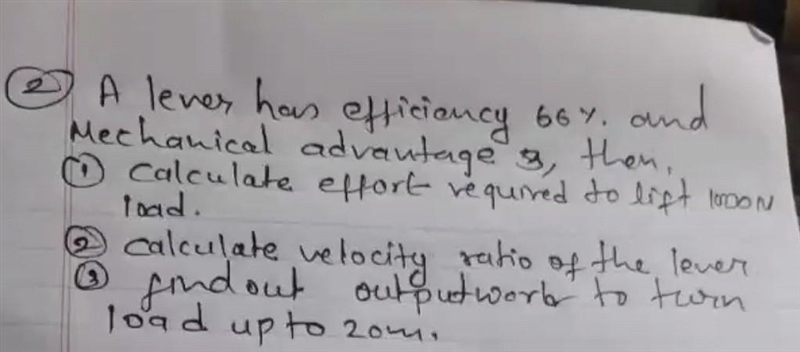 ② A lever has efficiency 66%. and
Mechanical advantage 3, then,
① Calculate effort required to lift 1000N
load.
② calculate velocity ratio of the lever
③ find out output work to turn
load up to 20m.